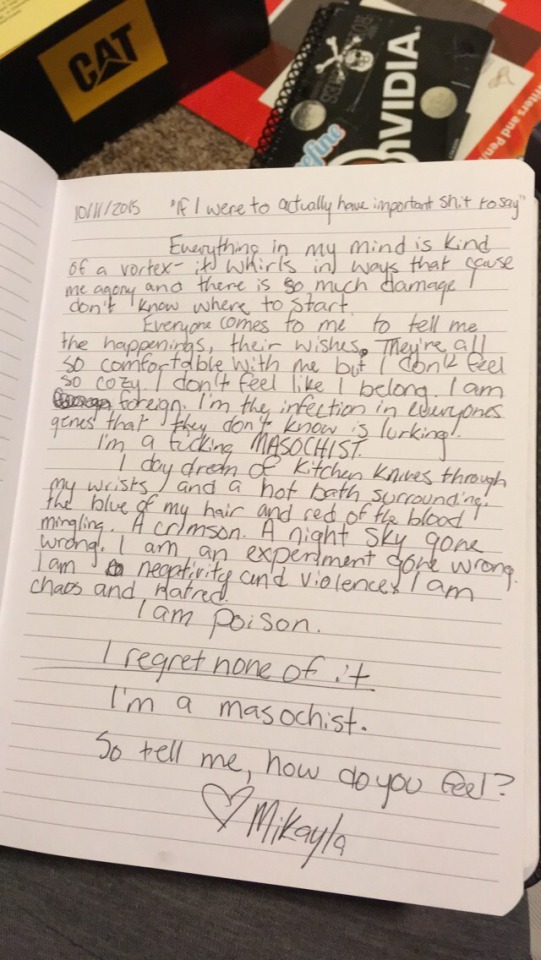 CAT
NVIDIA.
10/11/2015 "If I were to actually have important shit to say"
Everything in my mind is kind
of a vortex- it whirls in ways that cause
me agony and there is so much damage I
don't know where to start.
Everyone comes to me to tell me
the happenings, their wishes. They're all
so comfortable with me but I don't feel
so cozy. I don't feel like I belong. I am
foreign. I'm the infection in everyones
genes that they don't know is lurking!
I'm a fucking MASOCHIST.
I day dream of kitchen knives through
my wrists and a hot bath surrounding.
the blue of my hair and red of the blood
mingling. A crimson. A night sky gone
wrong. I am an experiment gone wrong.
I am negativity and violence. I am
chaos and hatred.
I am poison.
I regret none of it
I'm a masochist.
So tell me, how do you feel?
♡ Mikayla